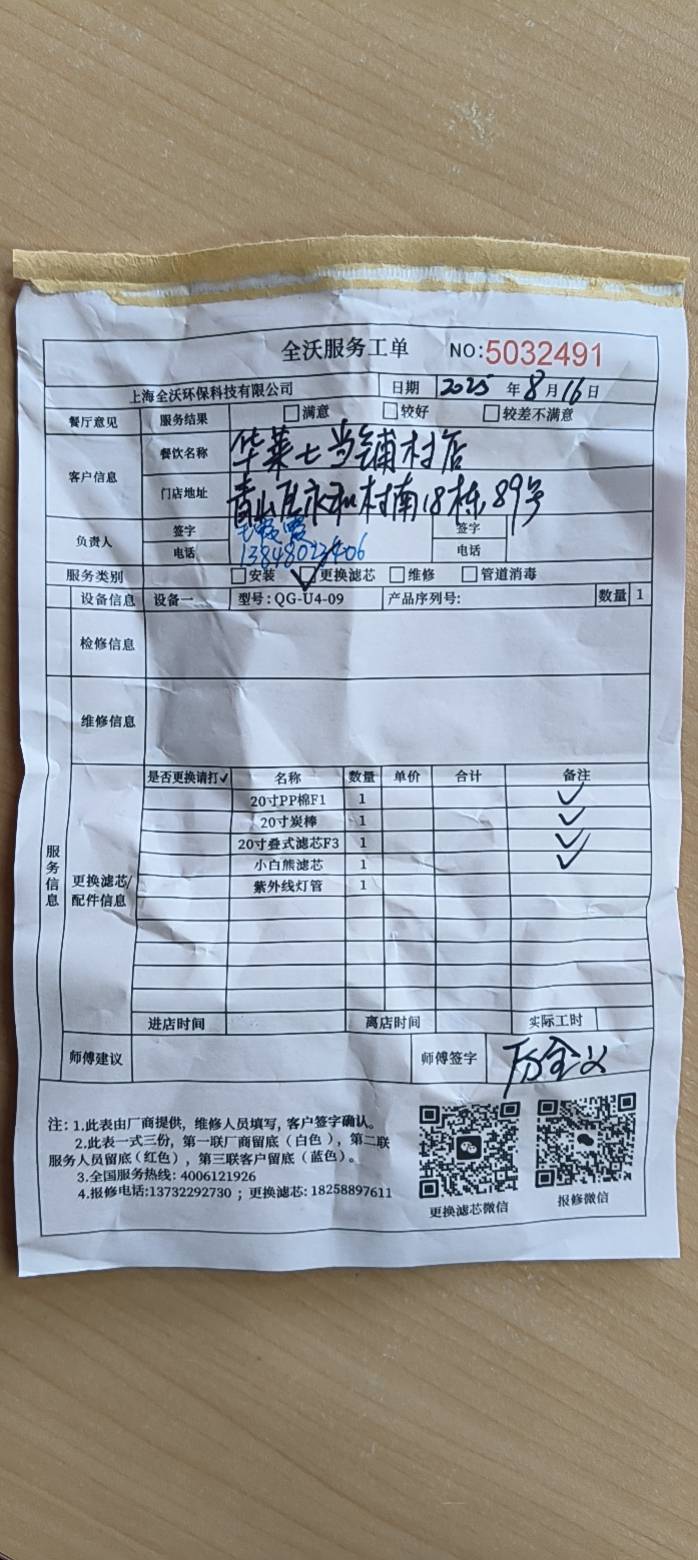 全沃服务工单 NO:5032491
上海全沃环保科技有限公司 日期 2025 年 8 月 16 日
餐厅意见 服务结果 满意 较好 较差不满意
客户信息 餐饮名称 华莱士当铺村店
门店地址 青山区永和村南18栋89号
负责人 签字 霞 签字
电话 电话
服务类别 安装 更换滤芯 维修 管道消毒
设备信息 设备一 型号:QG-U4-09 产品序列号: 数量 1
检修信息
维修信息
服务信息
更换滤芯/配件信息
是否更换请打✓ 名称 数量 单价 合计 备注
20寸PP棉F1 1 ✓
20寸炭棒 1 ✓
20寸叠式滤芯F3 1 ✓
小白熊滤芯 1 ✓
紫外线灯管 1
进店时间 离店时间 实际工时
师傅建议 师傅签字
注: 1.此表由厂商提供，维修人员填写，客户签字确认。
2.此表一式三份，第一联厂商留底（白色），第二联
服务人员留底(红色），第三联客户留底（蓝色）。
3.全国服务热线: 4006121926
4.报修电话:13732292730 ；更换滤芯: 18258897611
更换滤芯微信 报修微信